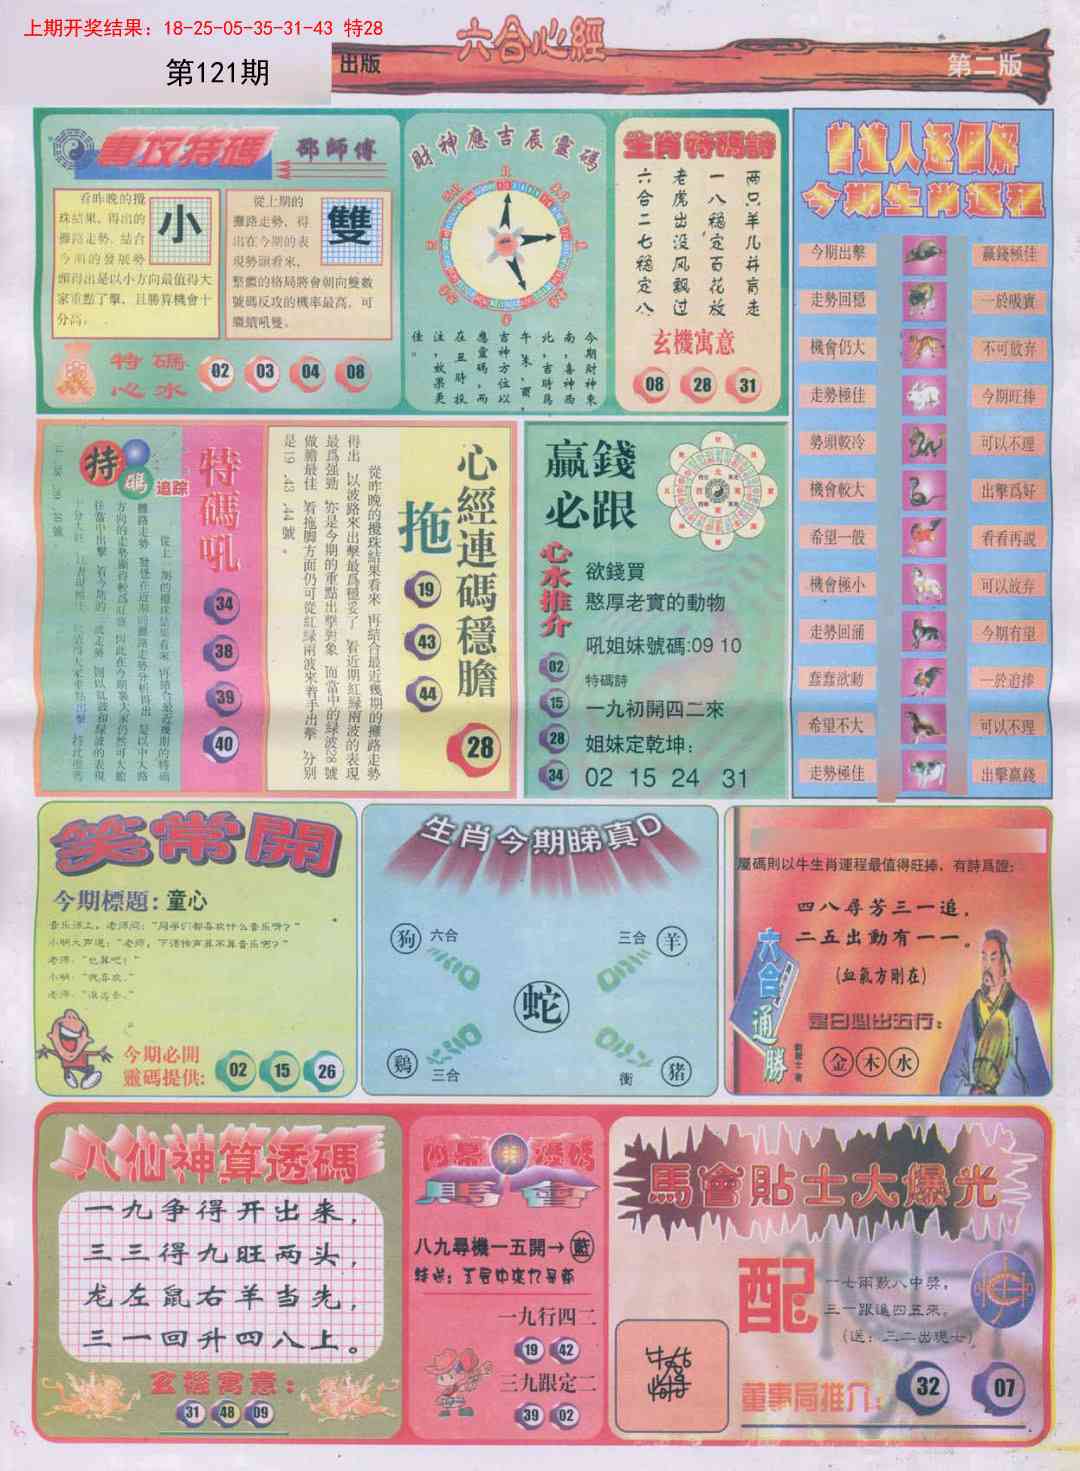 上期开奖结果：18-25-05-35-31-43 特28
第121期
出版
六合心經
第二版
專攻特碼
邵師傅
看昨晚的攪
珠結果，得出的
攤路走勢，結合
今期的發展勢
頭得出是以小方向最值得大
家重點了擊，且勝算機會十
分高。
小
從上期的
攤路走勢，得
出在今期的表
現勢頭看來，
整體的格局將會朝向雙數
號碼反攻的機率最高，可
繼續吼雙。
雙
特碼
心水
02 03 04 08
財神應吉辰靈碼
今期財神東
南，喜神西
北，吉時爲
午朱，酉，
吉神方位以
應靈碼，而
在丑時投
注，效果更
佳。
生肖特碼詩
两只羊儿并肓走
一八穩定百花放
老虎出没风飘过
六合二七穩定八
玄機寓意
08 28 31
曾道人逐個解
今期生肖运程
今期出擊 贏錢極佳
走勢回穩 一於吸實
機會仍大 不可放弃
走勢極佳 今期旺捧
勢頭較冷 可以不理
機會較大 出擊爲好
希望一般 看看再説
機會極小 可以放弃
走勢回涌 今期有望
蠢蠢欲動 一於追捧
希望不大 可以不理
走勢極佳 出擊贏錢
特碼追踪
特碼吼
34
38
39
40
心經連碼穩膽
拖
19
43
44
28
從昨晚的攪珠結果看來，再結合最近幾期的攤路走勢
得出，以波路來出擊最爲穩妥了，看近期紅緑兩波的表現
最爲强勁，亦是今期的重點出擊對象，而當中的緑波28號
做膽最佳，着拖脚方面仍可從紅緑兩波來着手出擊，分别
是19.43.44號。
贏錢
必跟
心水推介
02
15
28
34
欲錢買
憨厚老實的動物
吼姐妹號碼:09 10
特碼詩
一九初開四二來
姐妹定乾坤：
02 15 24 31
笑常開
今期標題：童心
音乐课上，老师问：“同学们都喜欢什么音乐呀？”
小明大声道：“老师，下课铃声算不算音乐呢？”
老师：“也算吧！”
小明：“我喜欢。”
今期必開
靈碼提供:
02 15 26
生肖今期睇真D
狗 六合
三合 羊
蛇
鷄 三合
衝 猪
屬碼則以牛生肖運程最值得旺捧，有詩爲證：
四八尋芳三一追，
二五出動有一一。
(血氣方剛在)
是日必出五行：
金 木 水
六合通勝
八仙神算透碼
一九争得开出来，
三三得九旺两头，
龙左鼠右羊当先，
三一回升四八上。
玄機寓意：
31 48 09
馬會
八九尋機一五開→藍
一九行四二
19 42
三九跟定二
39 02
馬會貼士大爆光
配
一七兩數八中獎，
三一跟進四五來。
(送：三二出現七)
董事局推介：
32 07